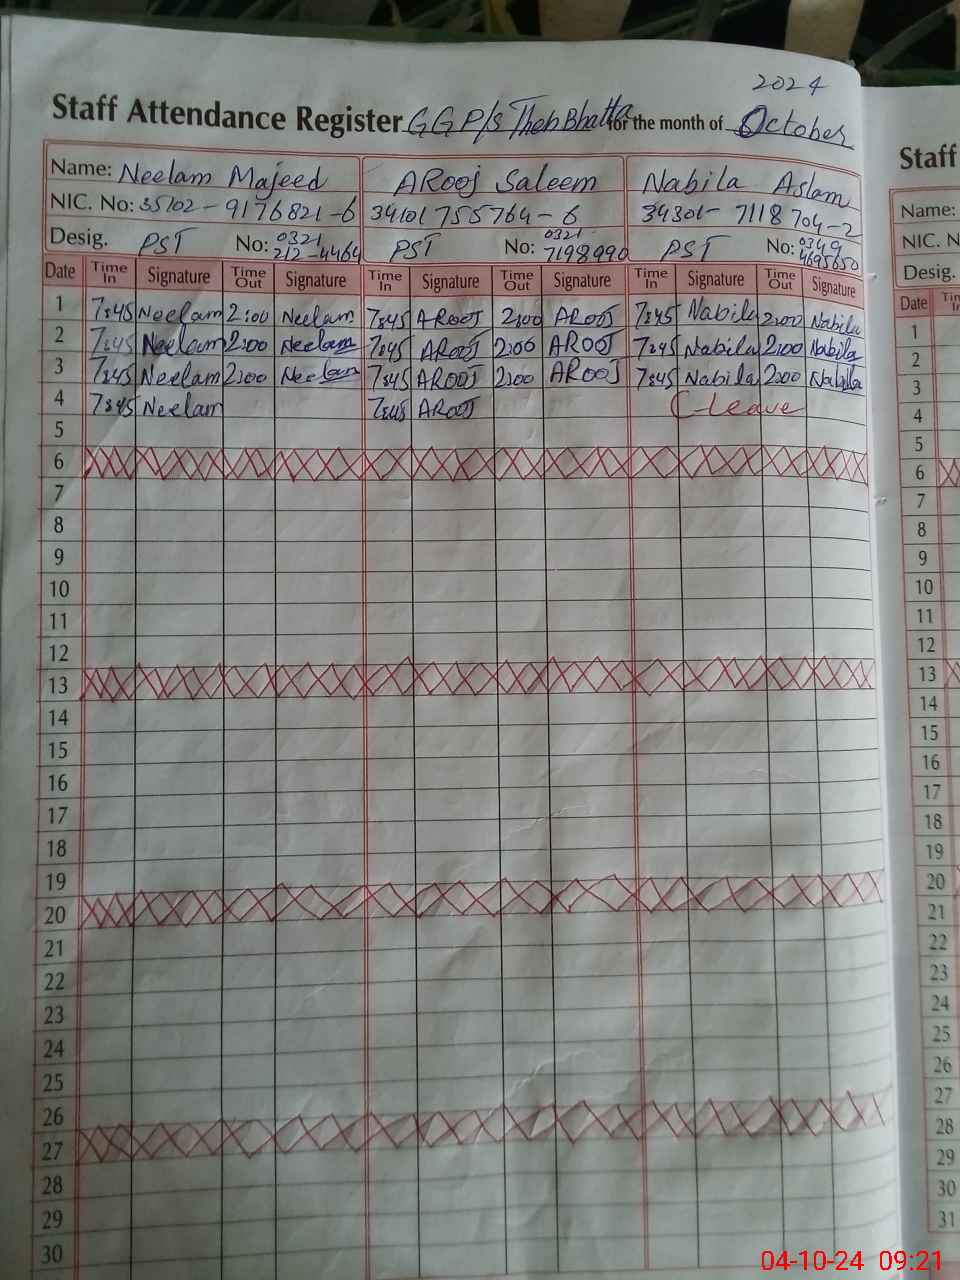 2024
Staff Attendance Register GGP/s Theh Bhatta for the month of October
Name: Neelam Majeed AROOJ Saleem Nabila Aslam
NIC. No: 35102-9176821-6 34101755764-6 34301-7118704-2
Desig. PST No: 0321 212-4464 PST No: 0321 7198990 PST No: 0349 4695650
Date Time In Signature Time Out Signature Time In Signature Time Out Signature Time In Signature Time Out Signature
1 7:45 Neelam 2:00 Neelam 7:45 AROOJ 2:00 AROOJ 7:45 Nabila 2:00 Nabila
2 7:45 Neelam 2:00 Neelam 7:45 AROOJ 2:00 AROOJ 7:45 Nabila 2:00 Nabila
3 7:45 Neelam 2:00 Neelam 7:45 AROOJ 2:00 AROOJ 7:45 Nabila 2:00 Nabila
4 7:45 Neelam 7:45 AROOJ C-Leave
5
6
7
8
9
10
11
12
13
14
15
16
17
18
19
20
21
22
23
24
25
26
27
28
29
30
Staff
Name:
NIC. N
Desig.
Date
1
2
3
4
5
6
7
8
9
10
11
12
13
14
15
16
17
18
19
20
21
22
23
24
25
26
27
28
29
30
31
04-10-24 09:21